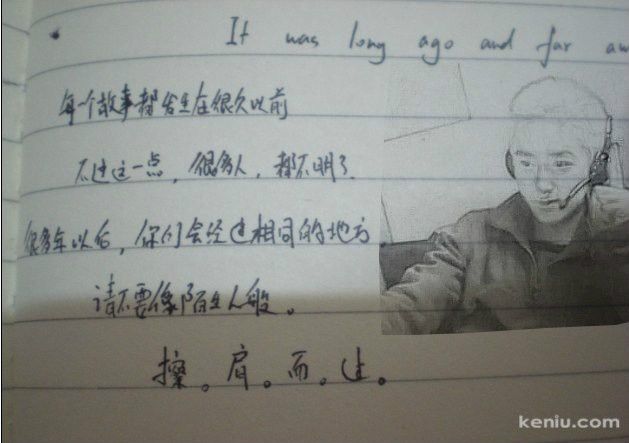 It was long ago and far aw
每个故事都发生在很久以前
不过这一点，很多人，都不明了.
很多年以后，你们会经过相同的地方.
请不要像陌生人般。
擦。肩。而。过。
keniu.com